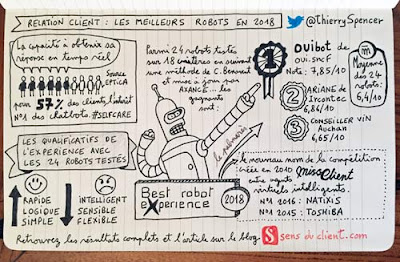 RELATION CLIENT : LES MEILLEURS ROBOTS EN 2018
@ThierrySpencer
La capacité à obtenir sa
réponse en temps réel
Space
OPTICA
pour 57% des clients, l'intérêt
N°1 des chatbots #SELFCARE
LES QUALIFICATIFS DE
L'EXPERIENCE AVEC
LES 24 ROBOTS TESTÉS
RAPIDE
LOGIQUE
SIMPLE
INTELLIGENT
SENSIBLE
FLEXIBLE
Parmi 24 robots testés
sur 18 critères en suivant
une méthode de C. Benavent
et mise à jour par
AXANCE... les
gagnants
sont :
1
OUibot de
oui.sncf
Note : 7,85/10
2
ARIANE de
Ircantec
6,86/10
3
CONSEILLER VIN
Auchan
6,65/10
m
Moyenne
des 24
robots :
6,4/10
le mémoriser
Best robot
eXperience
2018
le nouveau nom de la compétition
créée en 2010 Miss Client
entre agents
virtuels intelligents.
N°1 2016 : NATIXIS
N°1 2015 : TOSHIBA
Retrouvez les résultats complets et l'article sur le blog
S sens du client.com